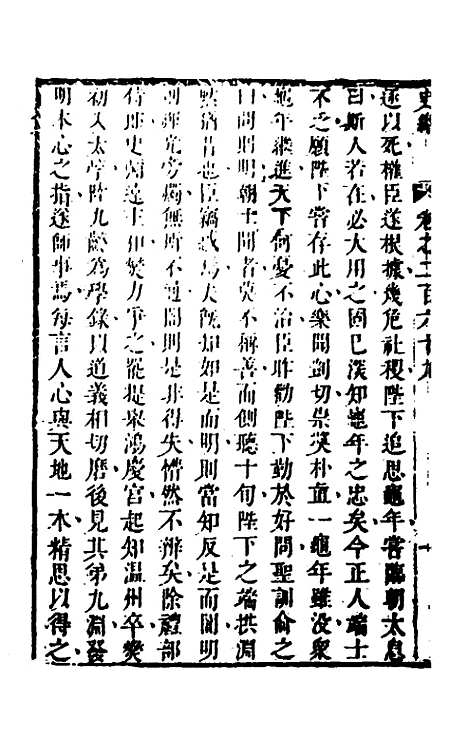 史綱 卷之二百六十九
遂以死權臣遂根據幾危社稷陛下追思龜年嘗臨朝太息
曰斯人若在必大用之固已深知龜年之忠矣今正人端士
不乏願陛下嘗存此心樂聞剴切崇奬朴直一龜年雖没衆
龜年繼進天下何憂不治臣昨勸陛下勤於好問聖訓俞之
曰問則明朝士聞者莫不稱善而側聽十旬陛下之端拱淵
默猶昔也臣竊惑焉夫旣知如是而明則當知反是而闇明
則輝光旁燭無所不通闇則是非得失懵然不辨矣除禮部
侍郎史彌遠主和燮力爭之罷提舉鴻慶宮起知温州卒燮
初入太學陸九齡爲學錄以道義相切磨後見其弟九淵發
明本心之指遂師事焉每言人心與天地一本精思以得之